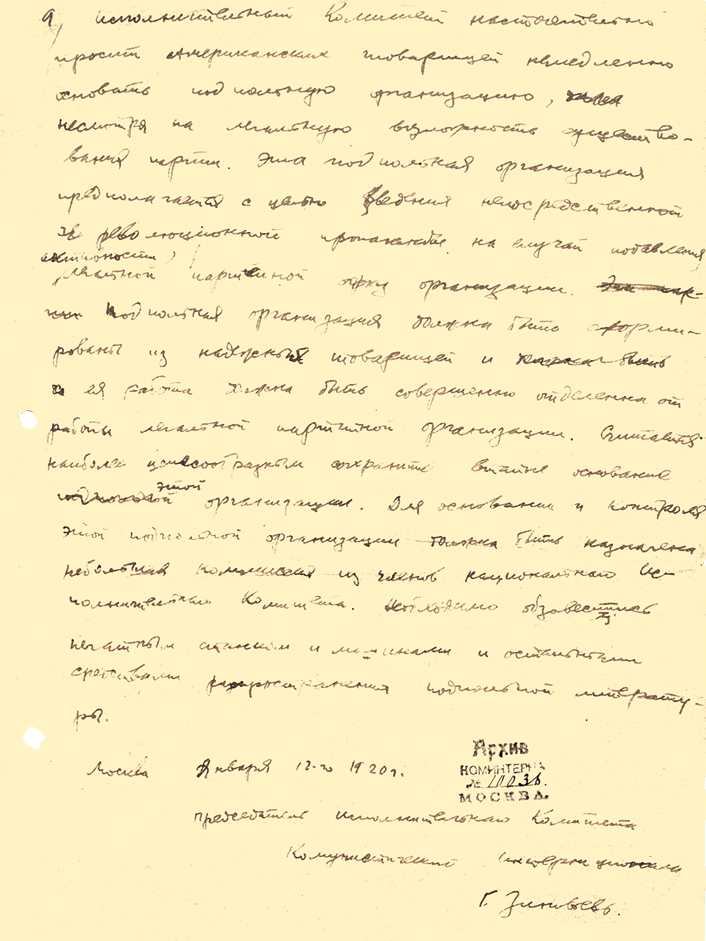 9, Исполнительный Комитет настоятельно
просит Американских товарищей немедленно
основать подпольную организацию,
несмотря на легальную возможность существо-
вания партии. Эта подпольная организация
предполагается с целью ведения непосредственной
революционной пропаганды, на случай подавления
легалной партийной организации.
Подпольная организация должна быть сформи-
рована из надежных товарищей и
ея работа должна быть совершенно отделенна от
работы легалной партийной организации. Считается
наиболее целесообразным сохранить втайне основание
этой организации. Для основания и контроля
этой подпольной организации должна быть назначена
небольшая коммиссия из членов национального Ис-
полнительнаго Комитета. Необходимо обзавестись
печатным станком и машинами и остальными
средствами распространения подпольной литерату-
ры.
Москва Января 12-го 1920 г.
Архив
КОМИНТЕРНА
№ 10036.
МОСКВА.
Председатель Исполнительнаго Комитета
Коммунистический Интернационала
Г. Зиновьевъ.